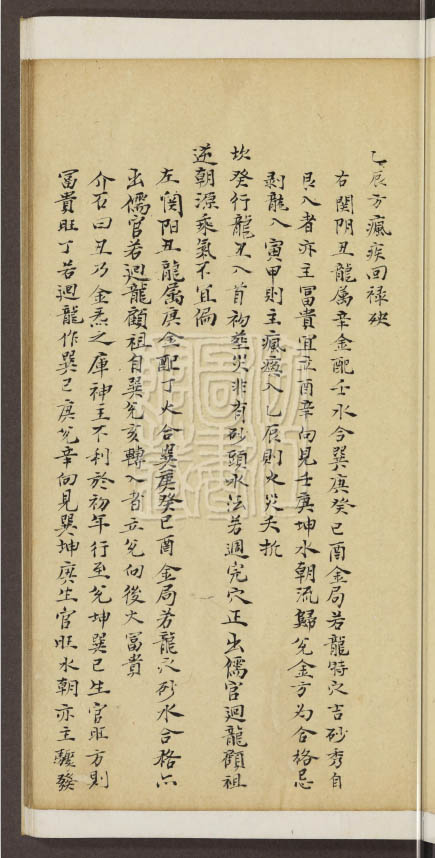 乙辰方瘋疾回祿殃
右関阴丑龍属辛金配壬水合巽庚癸巳酉金局若龍特穴吉砂秀自
艮入者亦主冨貴宜立酉辛向見壬庚坤水朝流歸兊金方为合格忌
剥龍入寅甲則主瘋癀入乙辰則火災夭折
坎癸行龍丑入首初塟災非有砂頭水法若週完穴正出儒官迴龍顧祖
逆朝源乘氣不宜偏
左関阳丑龍属庚金配丁火合巽庚癸巳酉金局若龍穴砂水合格六
出儒官若迴龍顧祖自巽兊亥轉入首立兊向後大冨貴
介石曰丑乃金炁之庫神主不利於初年行至兊坤巽巳生官旺方則
冨貴旺丁若迴龍作巽巳庚兊辛向見巽坤庚生官旺水朝亦主驟發